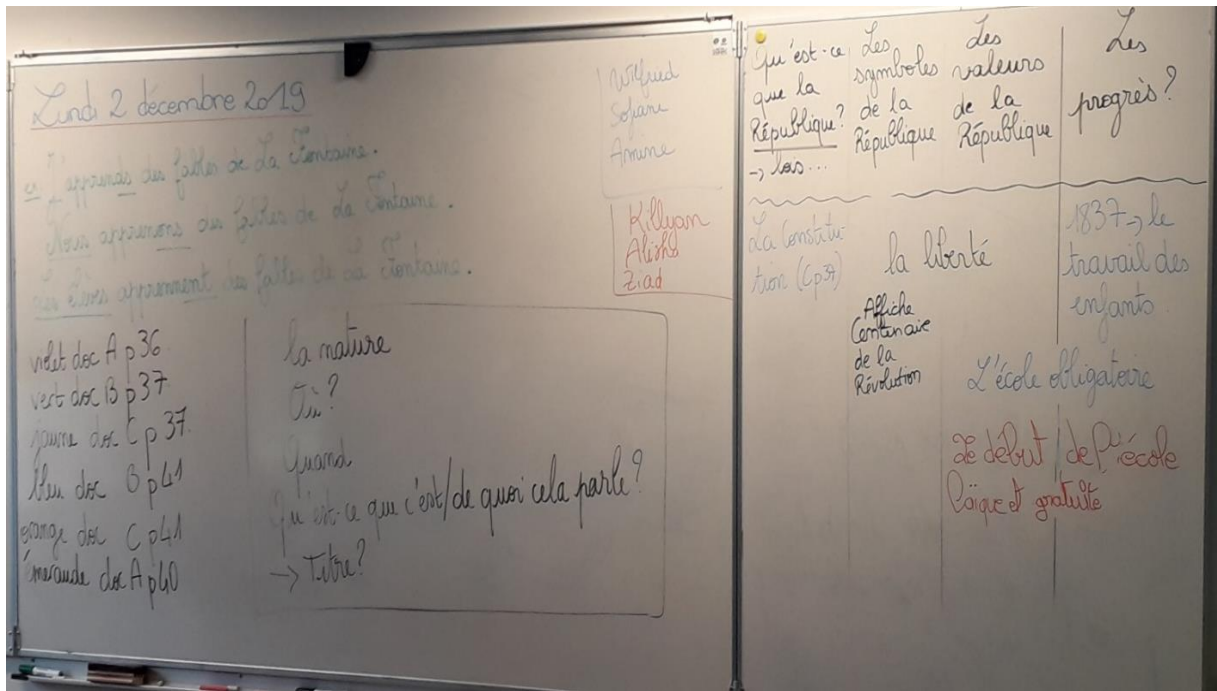 Lundi 2 décembre 2019
ex J'apprends des fables de La Fontaine.
Nous apprenons des fables de La Fontaine.
Les élèves apprennent des fables de La Fontaine.
Wilfried
Sofiane
Amine
Killyan
Alisha
Ziad
violet doc A p36
vert doc B p37
jaune doc C p37.
bleu doc B p41
orange doc C p41
émeraude doc A p40
la nature
Où?
Quand
Qu'est-ce que c'est/de quoi cela parle?
→ Titre?
Qu'est-ce
que la
République?
→ lois...
Les
symboles
de la
République
Les
valeurs
de la
République
Les
progrès?
La Constitu
tion (Cp37)
la liberté
Affiche
Centenaire
de la
Révolution
1837→ le
travail des
enfants.
L'école obligatoire
Le début de l'école
laïque et gratuite